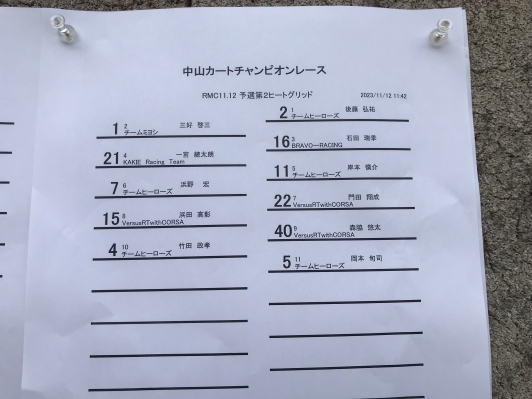 中山カートチャンピオンレース
RMC11.12 予選第2ヒートグリッド 2023/11/12 11:42
2 1 後藤 弘祐
チームヒーローズ
1 2 三好 啓三
チームミヨシ
16 3 石田 瑞季
BRAVO－RACING
21 4 一宮 總太朗
KAKIE Racing Team
11 5 岸本 慎介
チームヒーローズ
7 6 浜野 宏
チームヒーローズ
22 7 門田 翔成
VersusRTwithCORSA
15 8 浜田 高彰
VersusRTwithCORSA
40 9 森脇 悠太
VersusRTwithCORSA
4 10 竹田 政孝
チームヒーローズ
5 11 岡本 旬司
チームヒーローズ